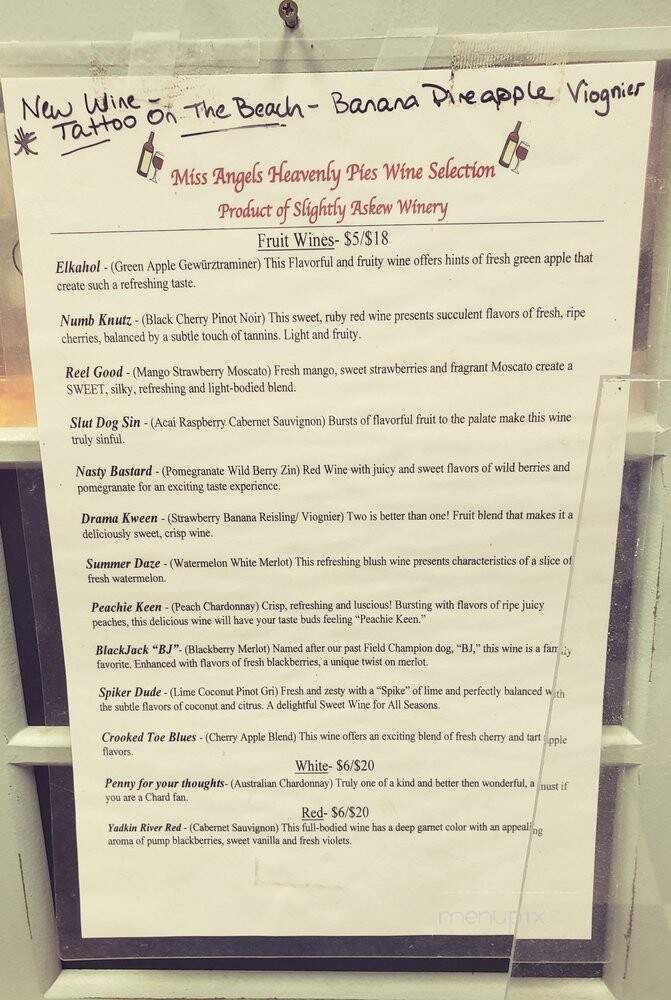 New Wine -
* Tattoo On The Beach - Banana Pineapple Viognier
Miss Angels Heavenly Pies Wine Selection
Product of Slightly Askew Winery
Fruit Wines- $5/$18
Elkahol - (Green Apple Gewürztraminer) This Flavorful and fruity wine offers hints of fresh green apple that
create such a refreshing taste.
Numb Knutz - (Black Cherry Pinot Noir) This sweet, ruby red wine presents succulent flavors of fresh, ripe
cherries, balanced by a subtle touch of tannins. Light and fruity.
Reel Good - (Mango Strawberry Moscato) Fresh mango, sweet strawberries and fragrant Moscato create a
SWEET, silky, refreshing and light-bodied blend.
Slut Dog Sin - (Acai Raspberry Cabernet Sauvignon) Bursts of flavorful fruit to the palate make this wine
truly sinful.
Nasty Bastard - (Pomegranate Wild Berry Zin) Red Wine with juicy and sweet flavors of wild berries and
pomegranate for an exciting taste experience.
Drama Kween - (Strawberry Banana Reisling/ Viognier) Two is better than one! Fruit blend that makes it a
deliciously sweet, crisp wine.
Summer Daze - (Watermelon White Merlot) This refreshing blush wine presents characteristics of a slice of
fresh watermelon.
Peachie Keen - (Peach Chardonnay) Crisp, refreshing and luscious! Bursting with flavors of ripe juicy
peaches, this delicious wine will have your taste buds feeling “Peachie Keen.”
BlackJack “BJ”- (Blackberry Merlot) Named after our past Field Champion dog, “BJ,” this wine is a family
favorite. Enhanced with flavors of fresh blackberries, a unique twist on merlot.
Spiker Dude - (Lime Coconut Pinot Gri) Fresh and zesty with a “Spike” of lime and perfectly balanced with
the subtle flavors of coconut and citrus. A delightful Sweet Wine for All Seasons.
Crooked Toe Blues - (Cherry Apple Blend) This wine offers an exciting blend of fresh cherry and tart apple
flavors.
White- $6/$20
Penny for your thoughts- (Australian Chardonnay) Truly one of a kind and better then wonderful, a must if
you are a Chard fan.
Red- $6/$20
Yadkin River Red - (Cabernet Sauvignon) This full-bodied wine has a deep garnet color with an appealing
aroma of pump blackberries, sweet vanilla and fresh violets.
menupix